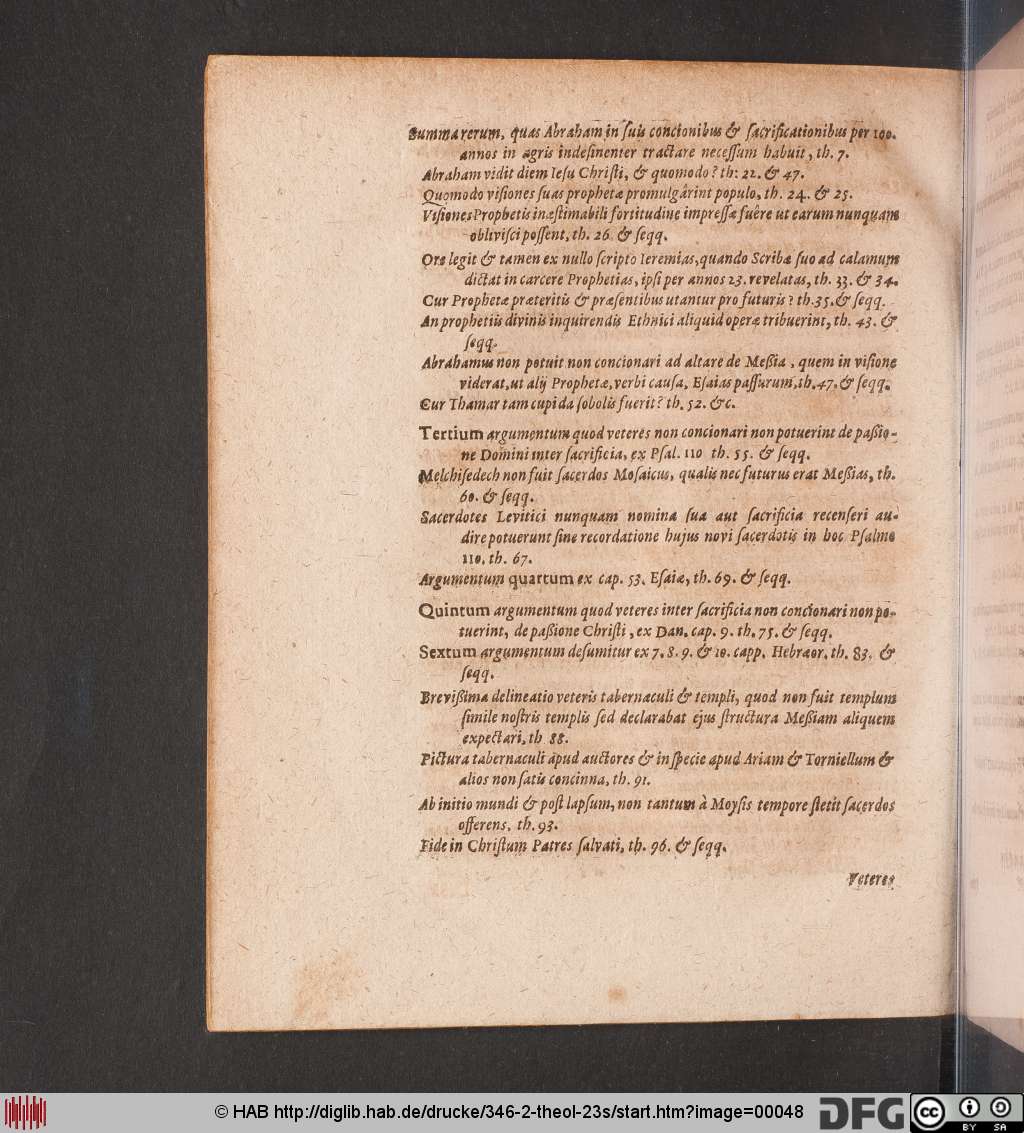 Summa rerum, quas Abraham in suis concionibus & sacrificationibus per 100.
annos in agris indesinenter tractare necessum habuit, th. 7.
Abraham vidit diem Iesu Christi, & quomodo? th: 21. & 47.
Quomodo visiones suas prophetæ promulgârint populo, th. 24. & 25.
Visiones Prophetis inæstimabili fortitudine impressæ fuêre ut earum nunquam
oblivisci possent, th. 26. & seqq.
Ore legit & tamen ex nullo scripto Ieremias, quando Scribæ suo ad calamum
dictat in carcere Prophetias, ipsi per annos 23. revelatas, th. 33. & 34.
Cur Prophetæ præteritis & præsentibus utantur pro futuris? th. 35. & seqq.
An prophetiis divinis inquirendis Ethnici aliquid operæ tribuerint, th. 43. &
seqq.
Abrahamus non potuit non concionari ad altare de Meßia, quem in visione
viderat, ut alij Prophetæ, verbi causa, Esaias passurum, th. 47. & seqq.
Cur Thamar tam cupida sobolis fuerit? th. 52. &c.
Tertium argumentum quod veteres non concionari non potuerint de paßio-
ne Domini inter sacrificia, ex Psal. 110 th. 55. & seqq.
Melchisedech non fuit sacerdos Mosaicus, qualis nec futurus erat Meßias, th.
60. & seqq.
Sacerdotes Levitici nunquam nomina sua aut sacrificia recenseri au-
dire potuerunt sine recordatione hujus novi sacerdotis in hoc Psalmo
110. th. 67.
Argumentum quartum ex cap. 53. Esaiæ, th. 69. & seqq.
Quintum argumentum quod veteres inter sacrificia non concionari non po-
tuerint, de paßione Christi, ex Dan. cap. 9. th. 75. & seqq.
Sextum argumentum desumitur ex 7. 8. 9. & 10. capp. Hebræor. th. 83. &
seqq.
Brevißima delineatio veteris tabernaculi & templi, quod non fuit templum
simile nostris templis sed declarabat ejus structura Meßiam aliquem
expectari, th 88.
Pictura tabernaculi apud auctores & in specie apud Ariam & Torniellum &
alios non satis concinna, th. 91.
Ab initio mundi & post lapsum, non tantum à Moysis tempore stetit sacerdos
offerens, th. 93.
Fide in Christum Patres salvati, th. 96. & seqq.
Veteres
© HAB http://diglib.hab.de/drucke/346-2-theol-23s/start.htm?image=00048
DFG
cc
BY SA